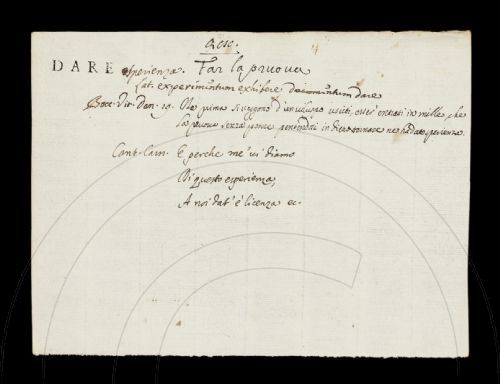 Cresc.
DARE esperienza. Far la pruova
Lat. experimentum exhibere documentum dare
Bocc. Vit. Dan. 19. Ma prima si veggono d'un viluppo usciti, esser entrati in mille, che
la pruova senza potere pentendosi indietro tornare ne ha data sperienza.
Cant. Carn. E perchè me' vi diamo
Di questo esperienza,
A noi dat' è licenza ec.